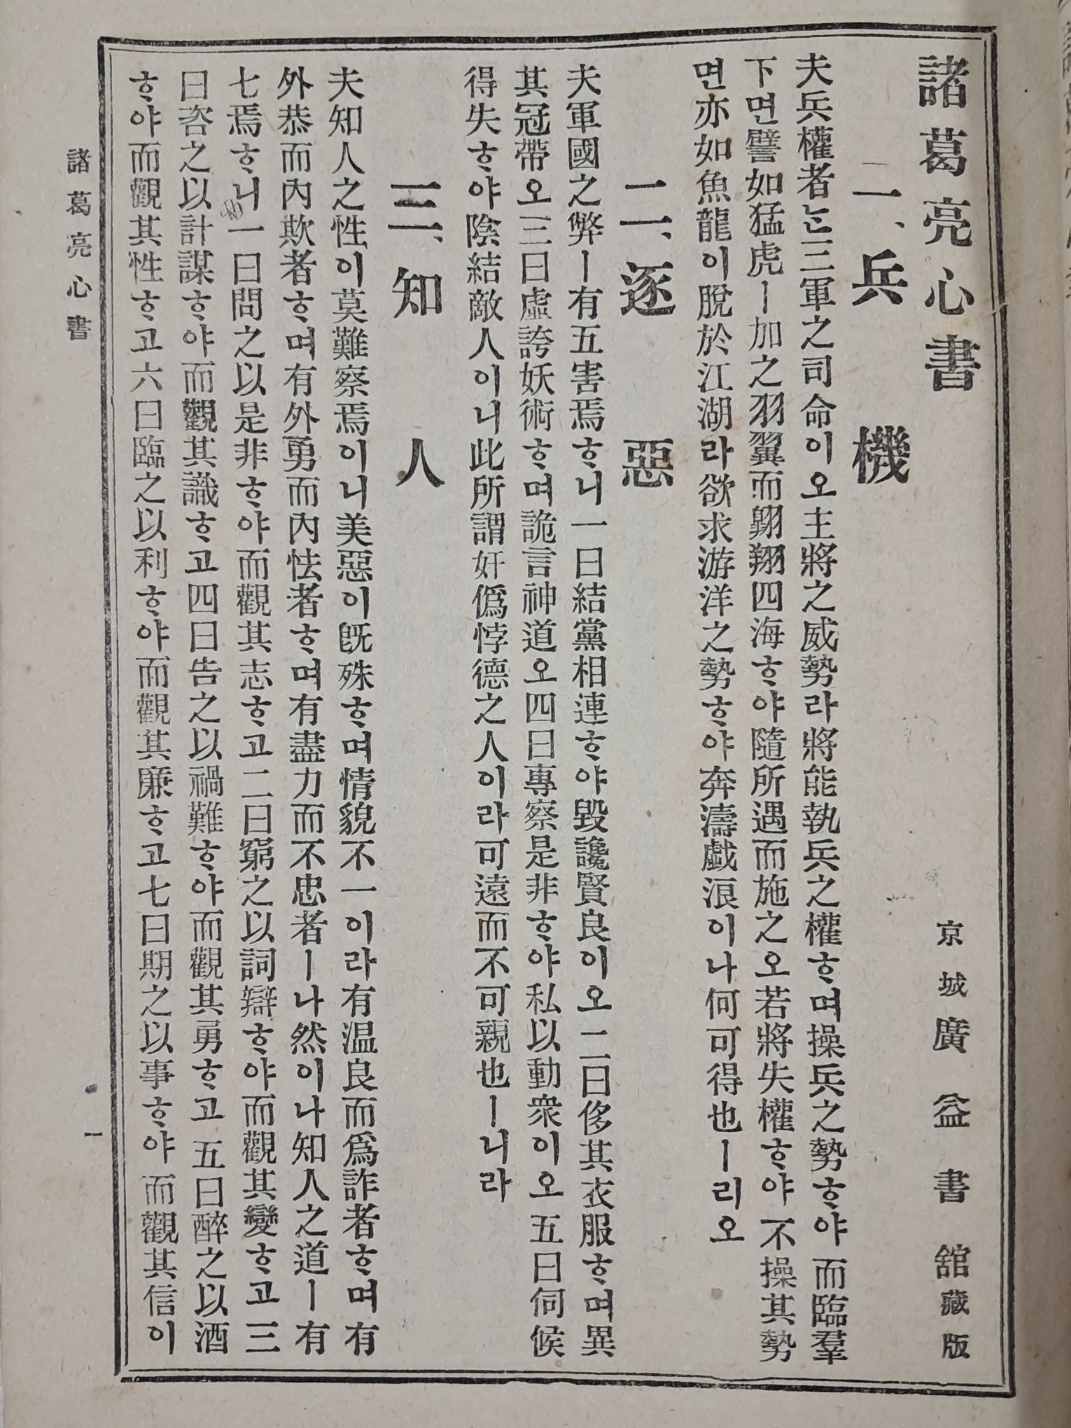 諸葛亮心書
京城廣益書舘藏版
一、兵機
夫兵權者는三軍之司命이오主將之威勢라將能執兵之權ᄒᆞ며操兵之勢ᄒᆞ야而臨羣
下면譬如猛虎ㅣ加之羽翼而翺翔四海ᄒᆞ야隨所遇而施之오若將失權ᄒᆞ야不操其勢
면亦如魚龍이脫於江湖라欲求游洋之勢ᄒᆞ야奔濤戱浪이나何可得也ㅣ리오
二、逐惡
夫軍國之弊ㅣ有五害焉ᄒᆞ니一曰結黨相連ᄒᆞ야毁讒賢良이오二曰侈其衣服ᄒᆞ며異
其冠帶오三曰虛誇妖術ᄒᆞ며詭言神道오四曰專察是非ᄒᆞ야私以動衆이오五曰伺候
得失ᄒᆞ야陰結敵人이니此所謂奸僞悖德之人이라可遠而不可親也ㅣ니라
三、知人
夫知人之性이莫難察焉이니美惡이旣殊ᄒᆞ며情貌不一이라有温良而爲詐者ᄒᆞ며有
外恭而內欺者ᄒᆞ며有外勇而內怯者ᄒᆞ며有盡力而不忠者ㅣ나然이나知人之道ㅣ有
七焉ᄒᆞ니一曰問之以是非ᄒᆞ야而觀其志ᄒᆞ고二曰窮之以詞辯ᄒᆞ야而觀其變ᄒᆞ고三
曰咨之以計謀ᄒᆞ야而觀其識ᄒᆞ고四曰告之以禍難ᄒᆞ야而觀其勇ᄒᆞ고五曰醉之以酒
ᄒᆞ야而觀其性ᄒᆞ고六曰臨之以利ᄒᆞ야而觀其廉ᄒᆞ고七曰期之以事ᄒᆞ야而觀其信이
諸葛亮心書
一